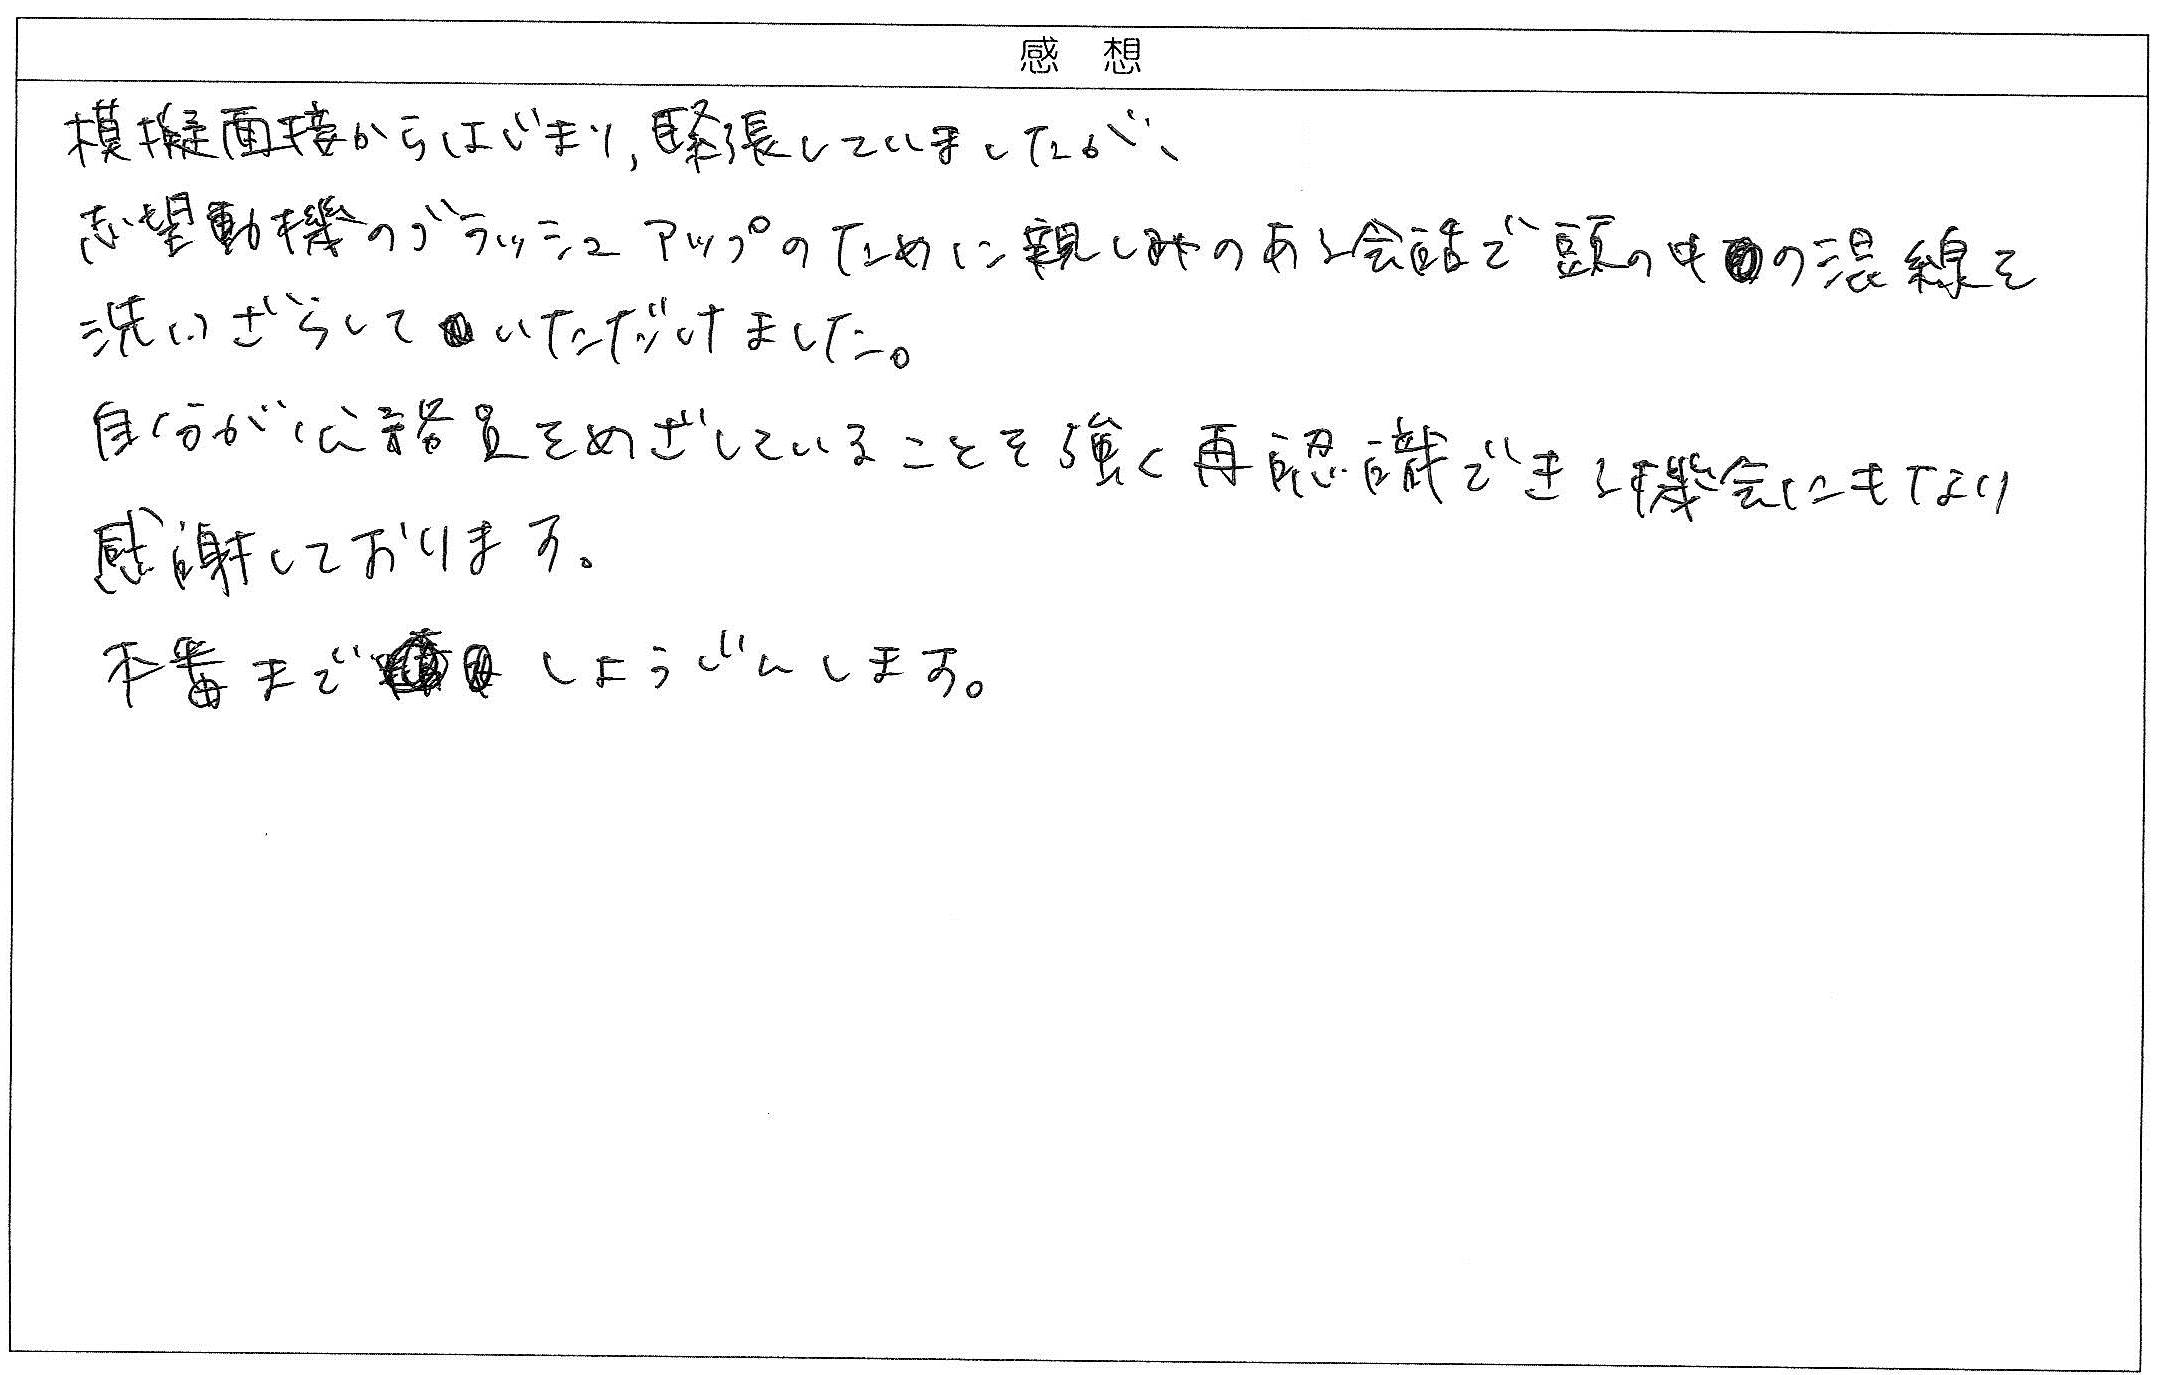 感想
模擬面接からはじまり,緊張していましたが、
志望動機のブラッシュアップのために親しみのある会話で頭の中の混線を
洗いざらしていただけました。
自分が公務員をめざしていることを強く再認識できる機会にもなり
感謝しております。
本番までしょうじんします。